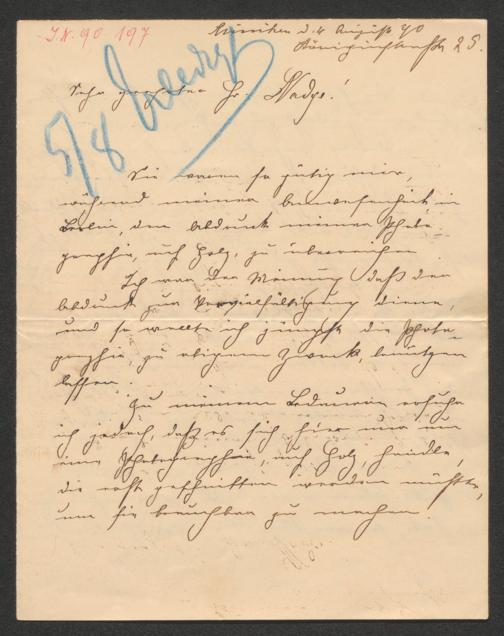 J.N. 90 197
München d. 4 August 90
Königinstraße 25.
5/8 erledigt
Sehr geehrter Hr. Nadge!
Sie waren so gütig mir,
während meiner Anwesenheit in
Berlin, den Abdruck meiner Photo-
graphie, auf Holz, zu überreichen.
Ich war der Meinung daß der
Abdruck zur Vervielfältigung diene,
und so wollte ich jüngst die Photo-
graphie, zu obigem Zweck, benützen
lassen.
Zu meinem Bedauern erfuhr
ich jedoch, daß es sich hier nur um
eine Photographie, auf Holz, handle,
die erst geschnitten werden müßte,
um sie brauchbar zu machen.